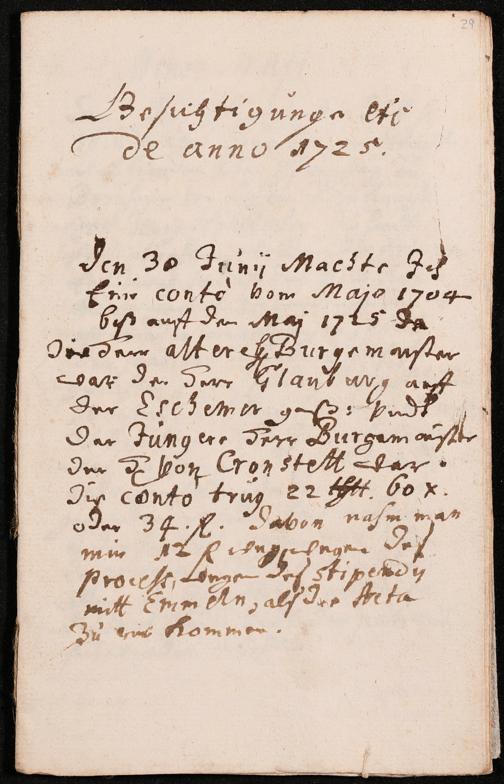 29
Besichtigunge etc
de anno 1725.
Den 30 Junij Machte Ich
Ein conto vom Majo 1704
biß auff den Maj 1725 da
der Herr altere H. Burgemeuster
war der Herr Glauburg auff
der Eschemer gaß: Vndt
Der Jüngere Herr Burgemeuster
der H. Von Cronstett war.
die conto trug 22 60 x.
oder 34. fl. davon nahm man
mir 12 fl wegen des
Process, wegen des stipendij
mitt Emmeln, als die Acta
zu kommen.